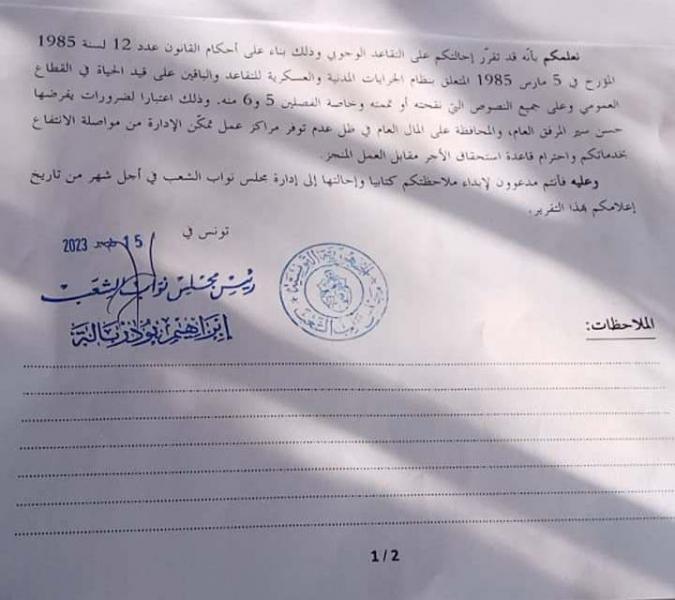 نعلمكم بأنه قد تقرّر إحالتكم على التقاعد الوجوبي وذلك بناء على أحكام القانون عدد 12 لسنة 1985
المؤرخ في 5 مارس 1985 المتعلق بنظام الجرايات المدنية والعسكرية للتقاعد والباقين على قيد الحياة في القطاع
العمومي وعلى جميع النصوص التي نقحته أو تممته وخاصة الفصلين 5 و6 منه. وذلك اعتبارا لضرورات يفرضها
حسن سير المرفق العام، والمحافظة على المال العام في ظل عدم توفر مراكز عمل تمكّن الإدارة من مواصلة الانتفاع
بخدماتكم واحترام قاعدة استحقاق الأجر مقابل العمل المنجز.
وعليه فأنتم مدعوون لإبداء ملاحظتكم كتابيا وإحالتها إلى إدارة مجلس نواب الشعب في أجل شهر من تاريخ
إعلامكم بهذا التقرير.
تونس في
15 2023
رئيس مجلس نواب الشعب
إبراهيم بودربالة
الجمهورية التونسية
مجلس نواب الشعب
الملاحظات:
1/2